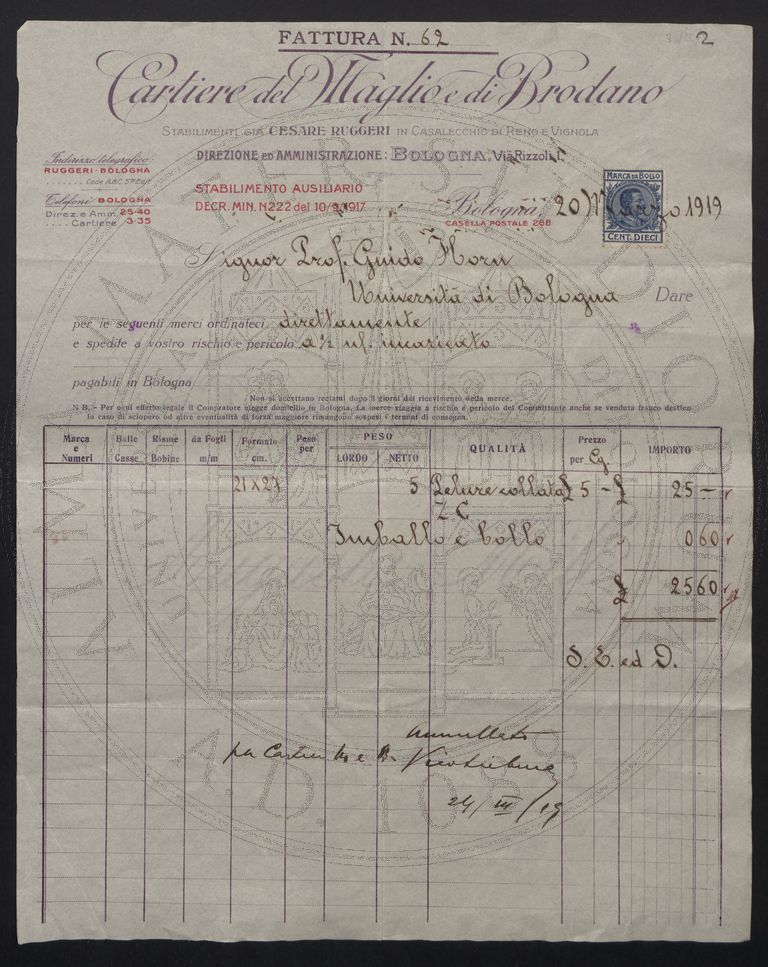 FATTURA N. 62
2
Cartiere del Maglio e di Brodano
STABILIMENTI GIÀ CESARE RUGGERI IN CASALECCHIO DI RENO E VIGNOLA
DIREZIONE ED AMMINISTRAZIONE: BOLOGNA, Via Rizzoli 1.
Indirizzo telegrafico:
RUGGERI-BOLOGNA
Code A.B.C. 5th Edit
Telefoni BOLOGNA
Direz. e Amm. 25-40
Cartiere 3-35
STABILIMENTO AUSILIARIO
DECR. MIN. N. 222 del 10/9/1917
Bologna, 20 Marzo 1919
CASELLA POSTALE 268
MARCA DA BOLLO
CENT. DIECI
Signor Prof. Guido Horn
Università di Bologna Dare
per le seguenti merci ordinateci direttamente
e spedite a vostro rischio e pericolo a½ vs/. incaricato
pagabili in Bologna
Non si accettano reclami dopo 8 giorni dal ricevimento della merce.
N. B. - Per ogni effetto legale il Compratore elegge domicilio in Bologna. La merce viaggia a rischio e pericolo del Committente anche se venduta franco destino.
In caso di sciopero od altre eventualità di forza maggiore rimangono sospesi i termini di consegna.
Marca e Numeri Balle Casse Risme Bobine da Fogli m/m Formato cm. Peso per PESO LORDO NETTO QUALITÀ Prezzo per Cg IMPORTO
21 x 27 5 Pelure collata £ 5 - £ 25 -
Z C
Imballo e bollo " 0 60
£ 25 60
S. E. ed O.
annullato
per Cartiere M e B.
24/III/19
ALMA MATER STUDIORUM
A.D. 1088